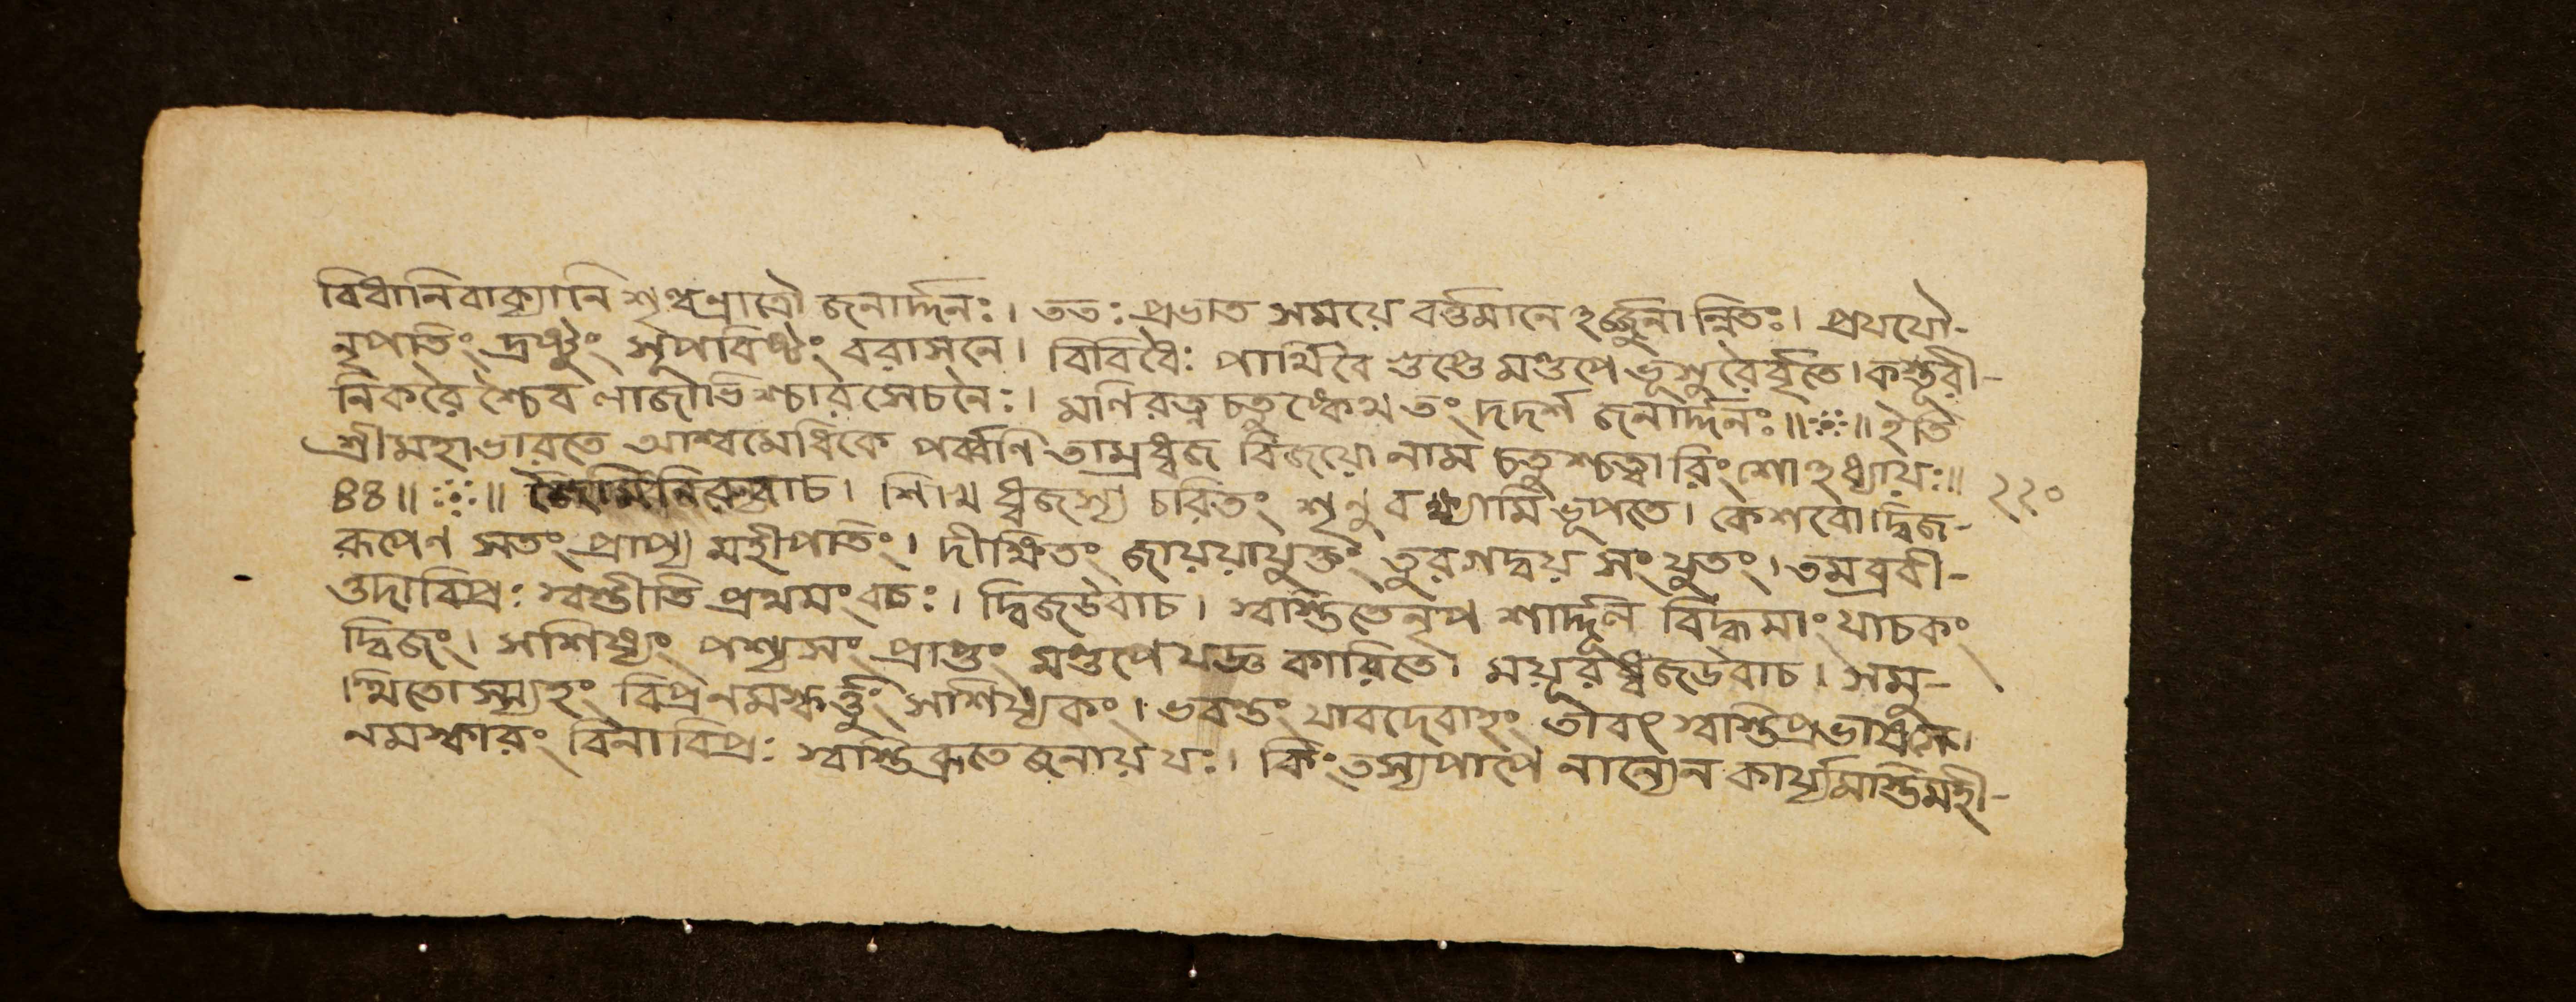 বিধানিবাক্যানি শৃণ্বন্রাত্রৌ জনার্দ্দনঃ। ততঃ প্রভাত সময়ে বর্ত্তমানে ঽর্জ্জুনান্বিতঃ। প্রযযৌ-
নৃপতিং দ্রষ্টুং সূপবিষ্টং বরাসনে। বিবিধৈঃ পার্থিবৈ র্গুপ্তে মণ্ডপে ভূসুরৈর্বৃতে। কস্তূরী-
নিকরৈ শ্চৈব লাজাভিশ্চারসেচনৈঃ। মণিরত্ন চতুষ্কেথ তং দদর্শ জনার্দ্দনঃ॥ঃ॥ ইতি
শ্রীমহাভারতে আশ্বমেধিকে পর্ব্বণি তাম্রধ্বজ বিজয়ো নাম চতুশ্চত্বারিংশোঽধ্যায়ঃ॥
৪৪॥ঃ॥ জৈমিনিরুবাচ। শিখিধ্বজস্য চরিতং শৃণু বক্ষ্যামি ভূপতে। কেশবো দ্বিজ- ২২০
রূপেণ সতং প্রাপ্য মহীপতিং। দীক্ষিতং জায়য়াযুক্তং তুরগদ্বয় সংযুতং। তমব্রবী-
ত্তদাবিপ্রঃ স্বস্তীতি প্রথমং বচঃ। দ্বিজউবাচ। স্বস্তিতেনৃপ শার্দ্দূল বিদ্ধিমাং যাচকং
দ্বিজং। সশিষ্যং পশ্যসং প্রাপ্তং মণ্ডপেযজ্ঞ কারিতে। ময়ূরধ্বজউবাচ। সমু-
ত্থিতোস্ম্যহং বিপ্রনমস্কর্ত্তুং সশিষ্যকং। ভবন্তং যাবদেবাহং তাবৎ স্বস্তিপ্রভাষসে।
নমস্কারং বিনাবিপ্রঃ স্বস্তিব্রূতে জনায় যঃ। কিং তস্যপাপে নান্যেন কার্য্যমস্তিমহী-